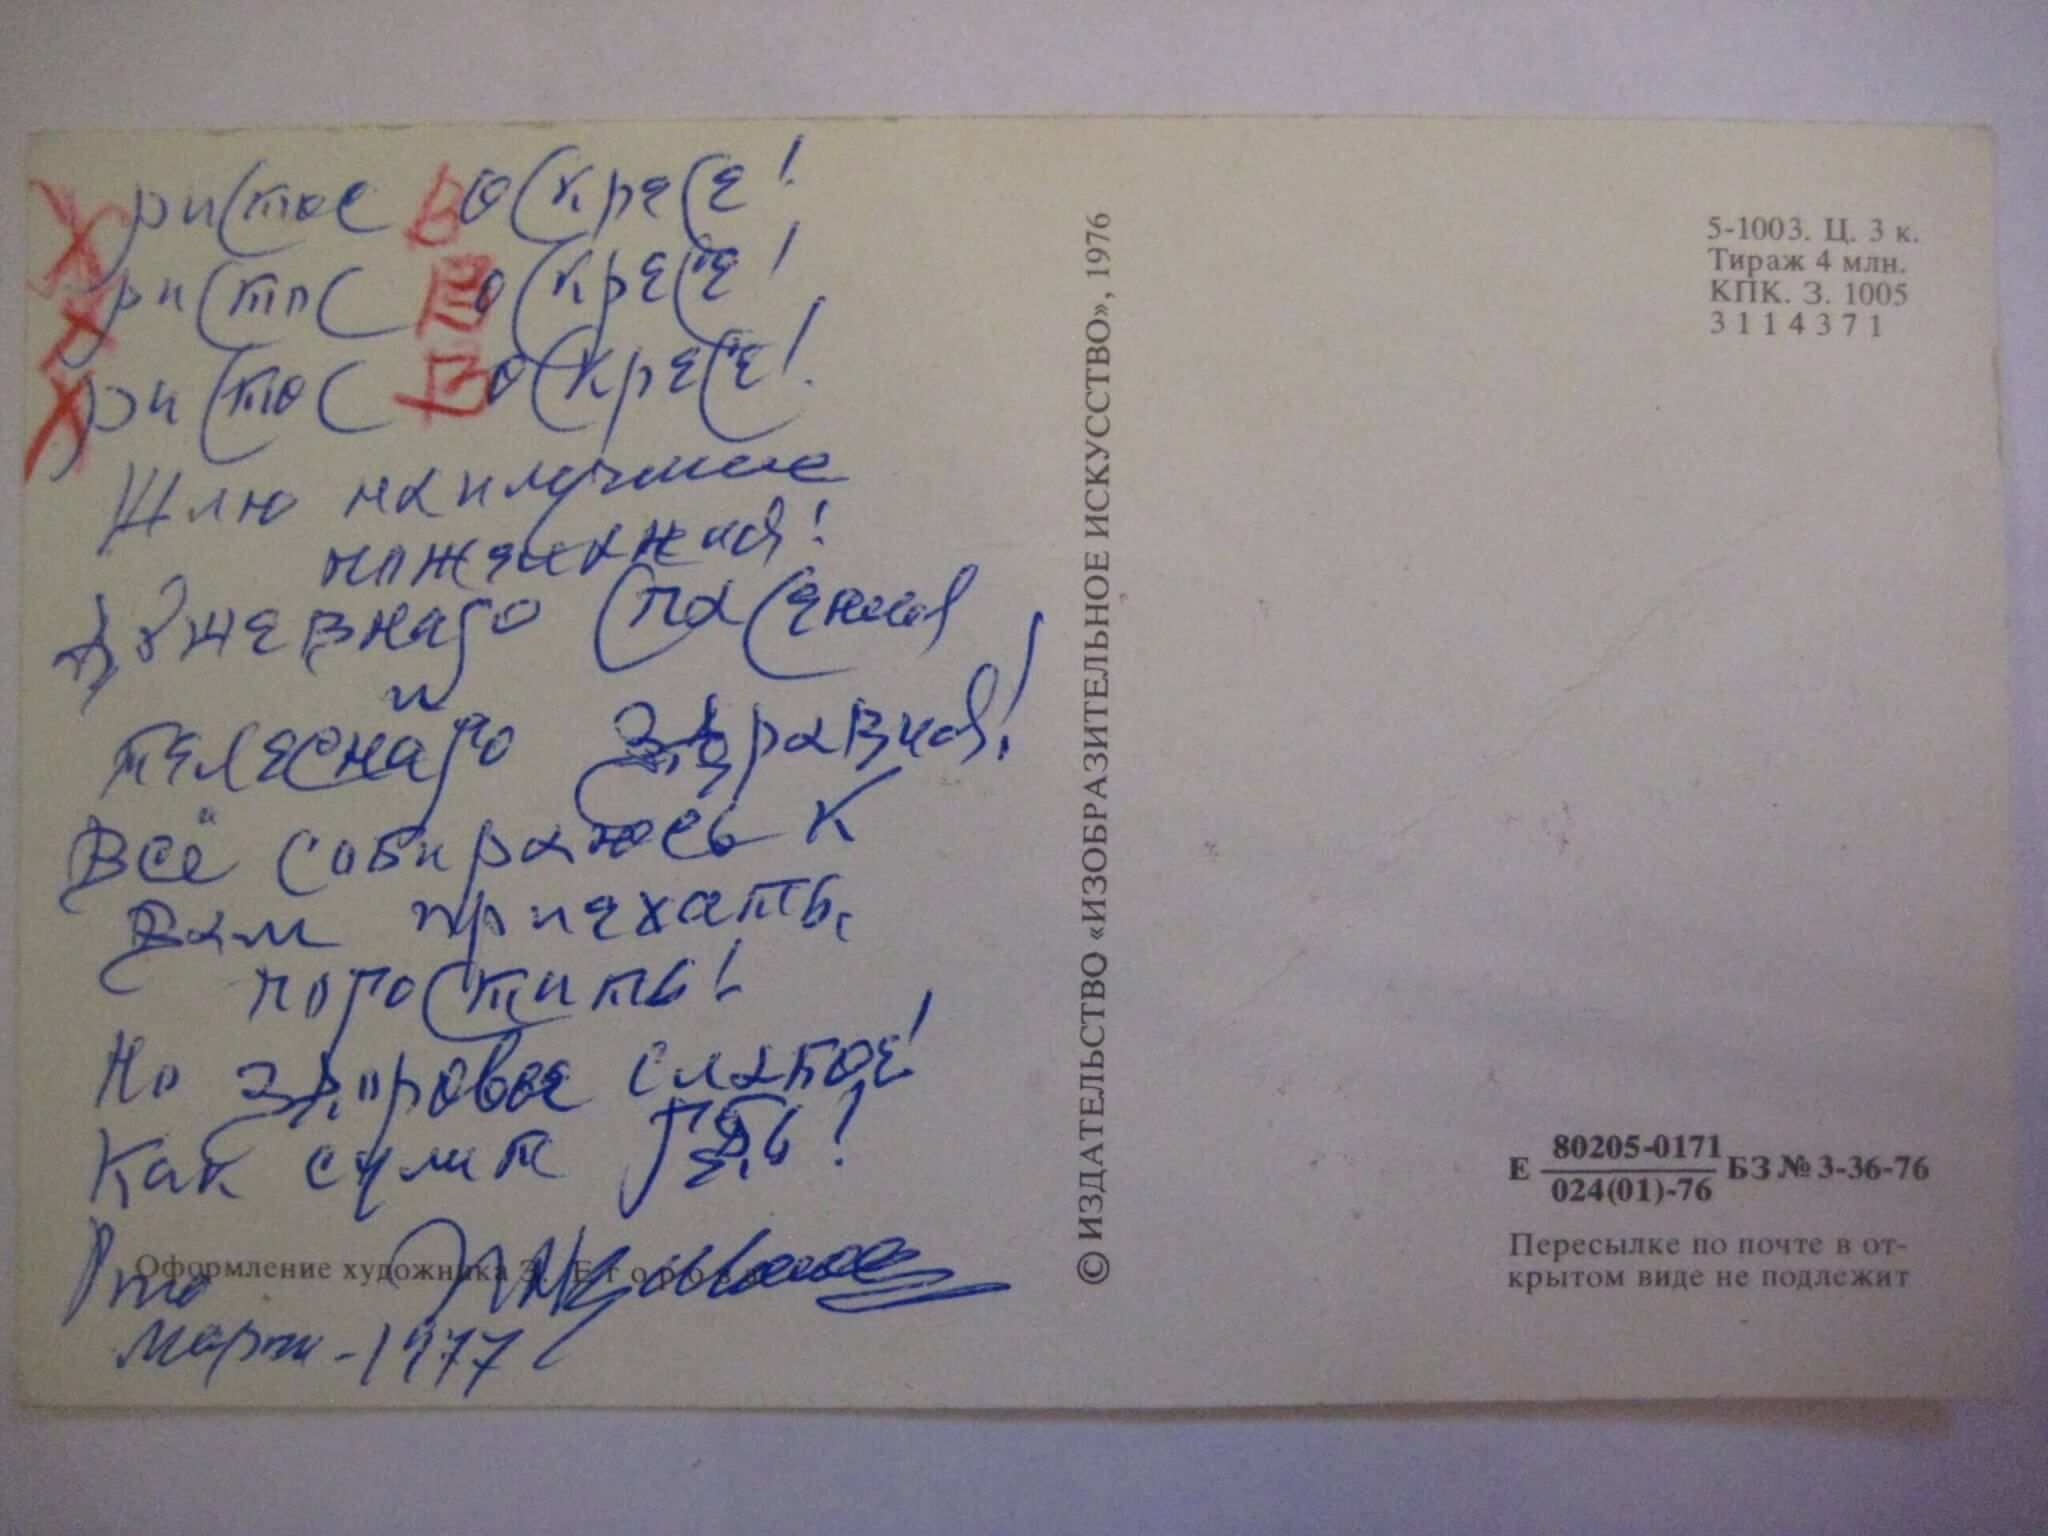 Христос Воскресе!
Христос Воскресе!
Христос Воскресе!
Шлю наилучшие
пожелания!
Душевнаго спасения
и
телеснаго здравия!
Всё собираюсь к
Вам приехать,
погостить!
Но здоровье слабое!
Как сулит
Оформление художника З. Егорова
Март-1977
© ИЗДАТЕЛЬСТВО «ИЗОБРАЗИТЕЛЬНОЕ ИСКУССТВО», 1976
5-1003. Ц. 3 к.
Тираж 4 млн.
КПК. З. 1005
3114371
Е 80205-0171 БЗ № 3-36-76
024(01)-76
Пересылке по почте в от-
крытом виде не подлежит